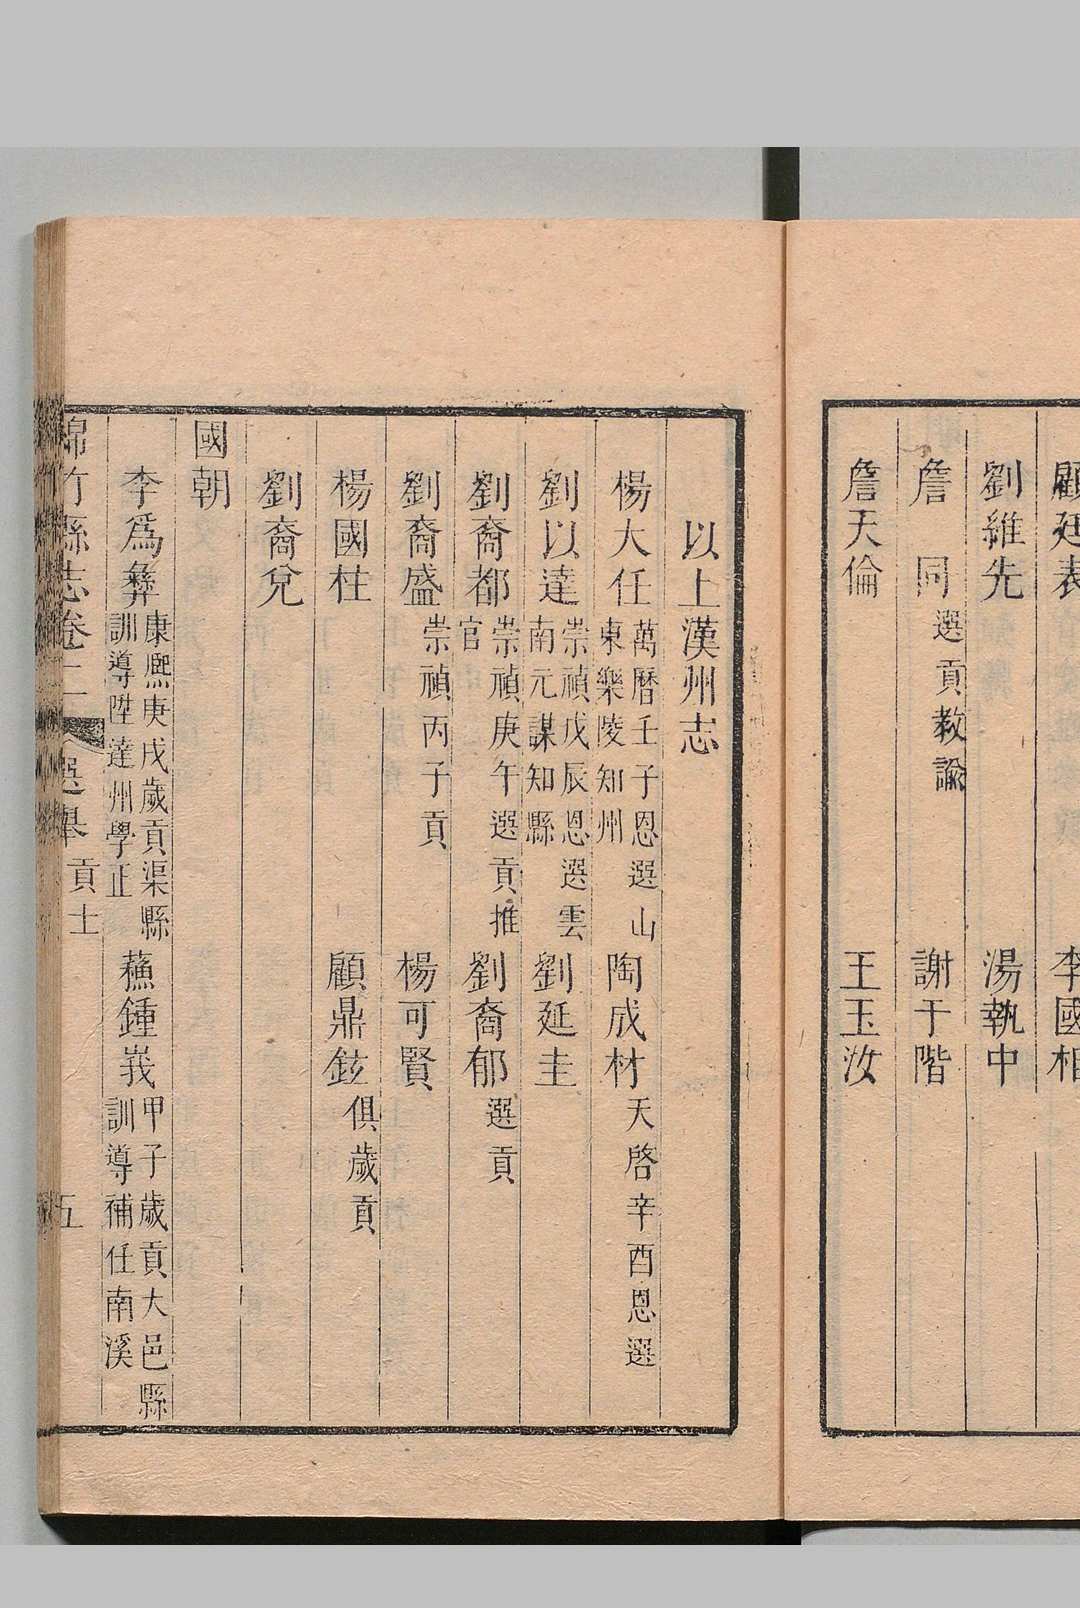 顧廷表　李國相
劉維先　湯執中
詹　同選貢教諭　謝于階
詹天倫　王玉汝
以上漢州志
楊大任萬曆壬子恩選山東樂陵知州　陶成材天啓辛酉恩選
劉以達崇禎戊辰恩選雲南元謀知縣　劉延圭
劉裔都崇禎庚午選貢推官　劉裔郁選貢
劉裔盛崇禎丙子貢　楊可賢
楊國柱　顧鼎鉉俱歲貢
劉裔兌
國朝
李爲彝康熙庚戌歲貢渠縣訓導陞達州學正　蘓鍾峩甲子歲貢大邑縣訓導補任南溪
綿竹縣志卷　選舉　貢士　五